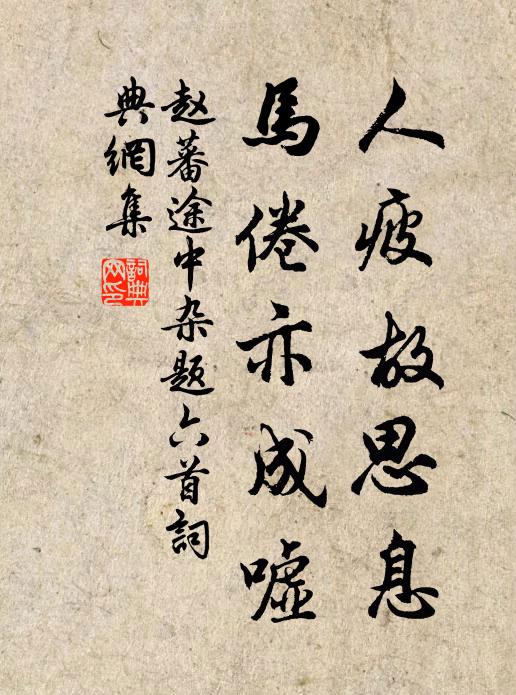 人疲故思息
馬倦亦成噓
赵蕃途中杂题六首詞
典網集
詞典
网印